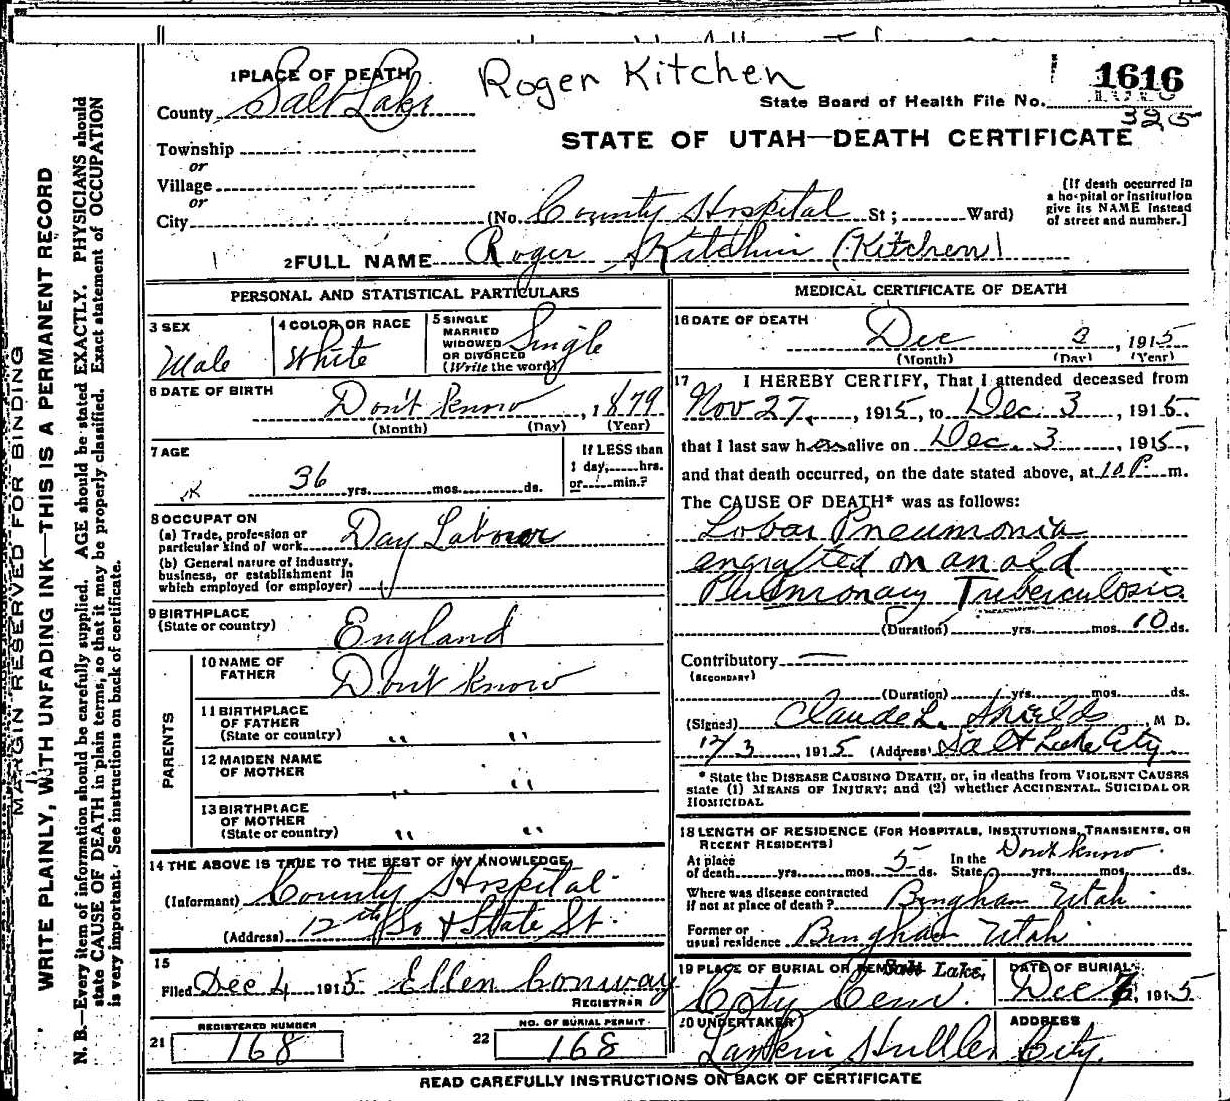 Roger Kitchen
1616
325
State Board of Health File No.
STATE OF UTAH—DEATH CERTIFICATE
1 PLACE OF DEATH
County Salt Lake
Township
or
Village
or
City
(No. County Hospital St; Ward)
[If death occurred in
a hospital or institution
give its NAME instead
of street and number.]
2 FULL NAME Roger Kitchin (Kitchen)
PERSONAL AND STATISTICAL PARTICULARS
3 SEX
Male
4 COLOR OR RACE
White
5 SINGLE
MARRIED
WIDOWED
OR DIVORCED
(Write the word)
Single
6 DATE OF BIRTH
Don't know, 1879
(Month) (Day) (Year)
7 AGE
36 yrs. mos. ds.
If LESS than
1 day, hrs.
or min.?
8 OCCUPATON
(a) Trade, profession or
particular kind of work Day Laborer
(b) General nature of industry,
business, or establishment in
which employed (or employer)
9 BIRTHPLACE
(State or country)
England
PARENTS
10 NAME OF
FATHER
Don't know
11 BIRTHPLACE
OF FATHER
(State or country) " "
12 MAIDEN NAME
OF MOTHER " "
13 BIRTHPLACE
OF MOTHER
(State or country) " "
14 THE ABOVE IS TRUE TO THE BEST OF MY KNOWLEDGE
(Informant) County Hospital
(Address) 12th So & State St.
15
Filed Dec 4 1915 Ellen Conway
REGISTRAR
REGISTERED NUMBER
21 168
NO. OF BURIAL PERMIT
22 168
MEDICAL CERTIFICATE OF DEATH
16 DATE OF DEATH
Dec 3, 1915
(Month) (Day) (Year)
17 I HEREBY CERTIFY, That I attended deceased from
Nov 27, 1915, to Dec. 3, 1915.
that I last saw h alive on Dec. 3 1915,
and that death occurred, on the date stated above, at 10 P. m.
The CAUSE OF DEATH* was as follows:
Lobar Pneumonia
engrafted on an old
Pulmonary Tuberculosis
(Duration) yrs. mos. 10 ds.
Contributory —
(SECONDARY)
(Duration) yrs. mos. ds.
(Signed) Claude L. Shields, M D.
12/3, 1915 (Address) Salt Lake City
* State the DISEASE CAUSING DEATH, or, in deaths from VIOLENT CAUSES
state (1) MEANS OF INJURY; and (2) whether ACCIDENTAL, SUICIDAL OR
HOMICIDAL
18 LENGTH OF RESIDENCE (FOR HOSPITALS, INSTITUTIONS, TRANSIENTS, OR
RECENT RESIDENTS)
At place
of death yrs. mos. 5 ds.
In the
State yrs. mos. ds.
Don't know
Where was disease contracted
if not at place of death? Bingham Utah
Former or
usual residence Bingham Utah
19 PLACE OF BURIAL OR Salt Lake,
City Cem.
DATE OF BURIAL
Dec , 1915
20 UNDERTAKER
ADDRESS
City.
READ CAREFULLY INSTRUCTIONS ON BACK OF CERTIFICATE
MARGIN RESERVED FOR BINDING
WRITE PLAINLY, WITH UNFADING INK—THIS IS A PERMANENT RECORD
N. B.—Every item of information should be carefully supplied. AGE should be stated EXACTLY. PHYSICIANS should
state CAUSE OF DEATH in plain terms, so that it may be properly classified. Exact statement of OCCUPATION
is very important. See instructions on back of certificate.